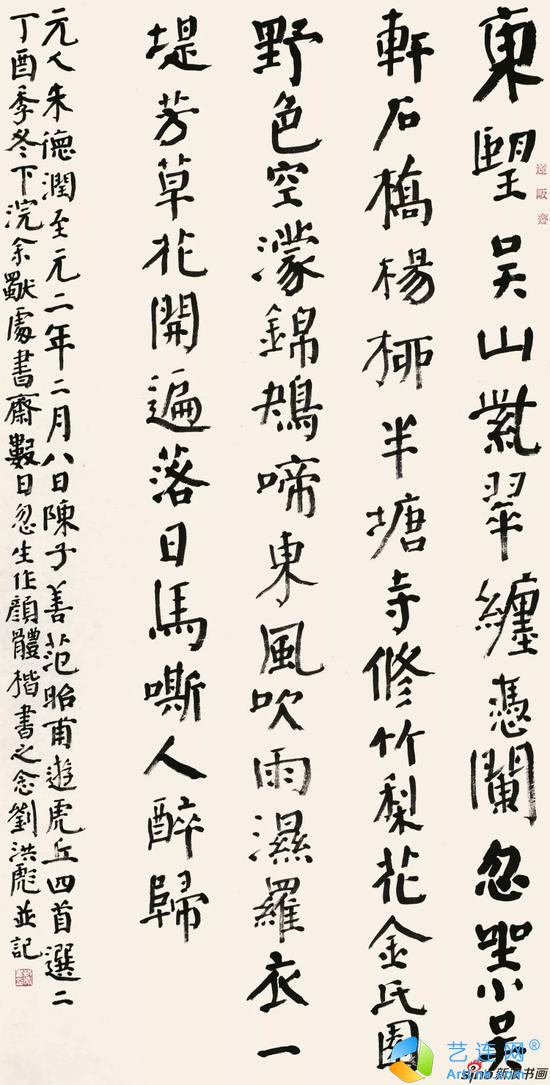 東朢吳山紫翠纏憑闌忽坐小吳
軒石橋楊柳半塘寺修竹梨花金氏園
野色空濛錦啼東風吹雨濕羅衣一
堤芳草花開遍落日馬嘶人醉歸
元人朱德潤至元二年二月八日陳子善范昭甫遊虎丘四首選二
丁酉季冬下浣余處書齋數日忽生作顏體楷書之念劉洪彪並記
艺连网
新浪书画